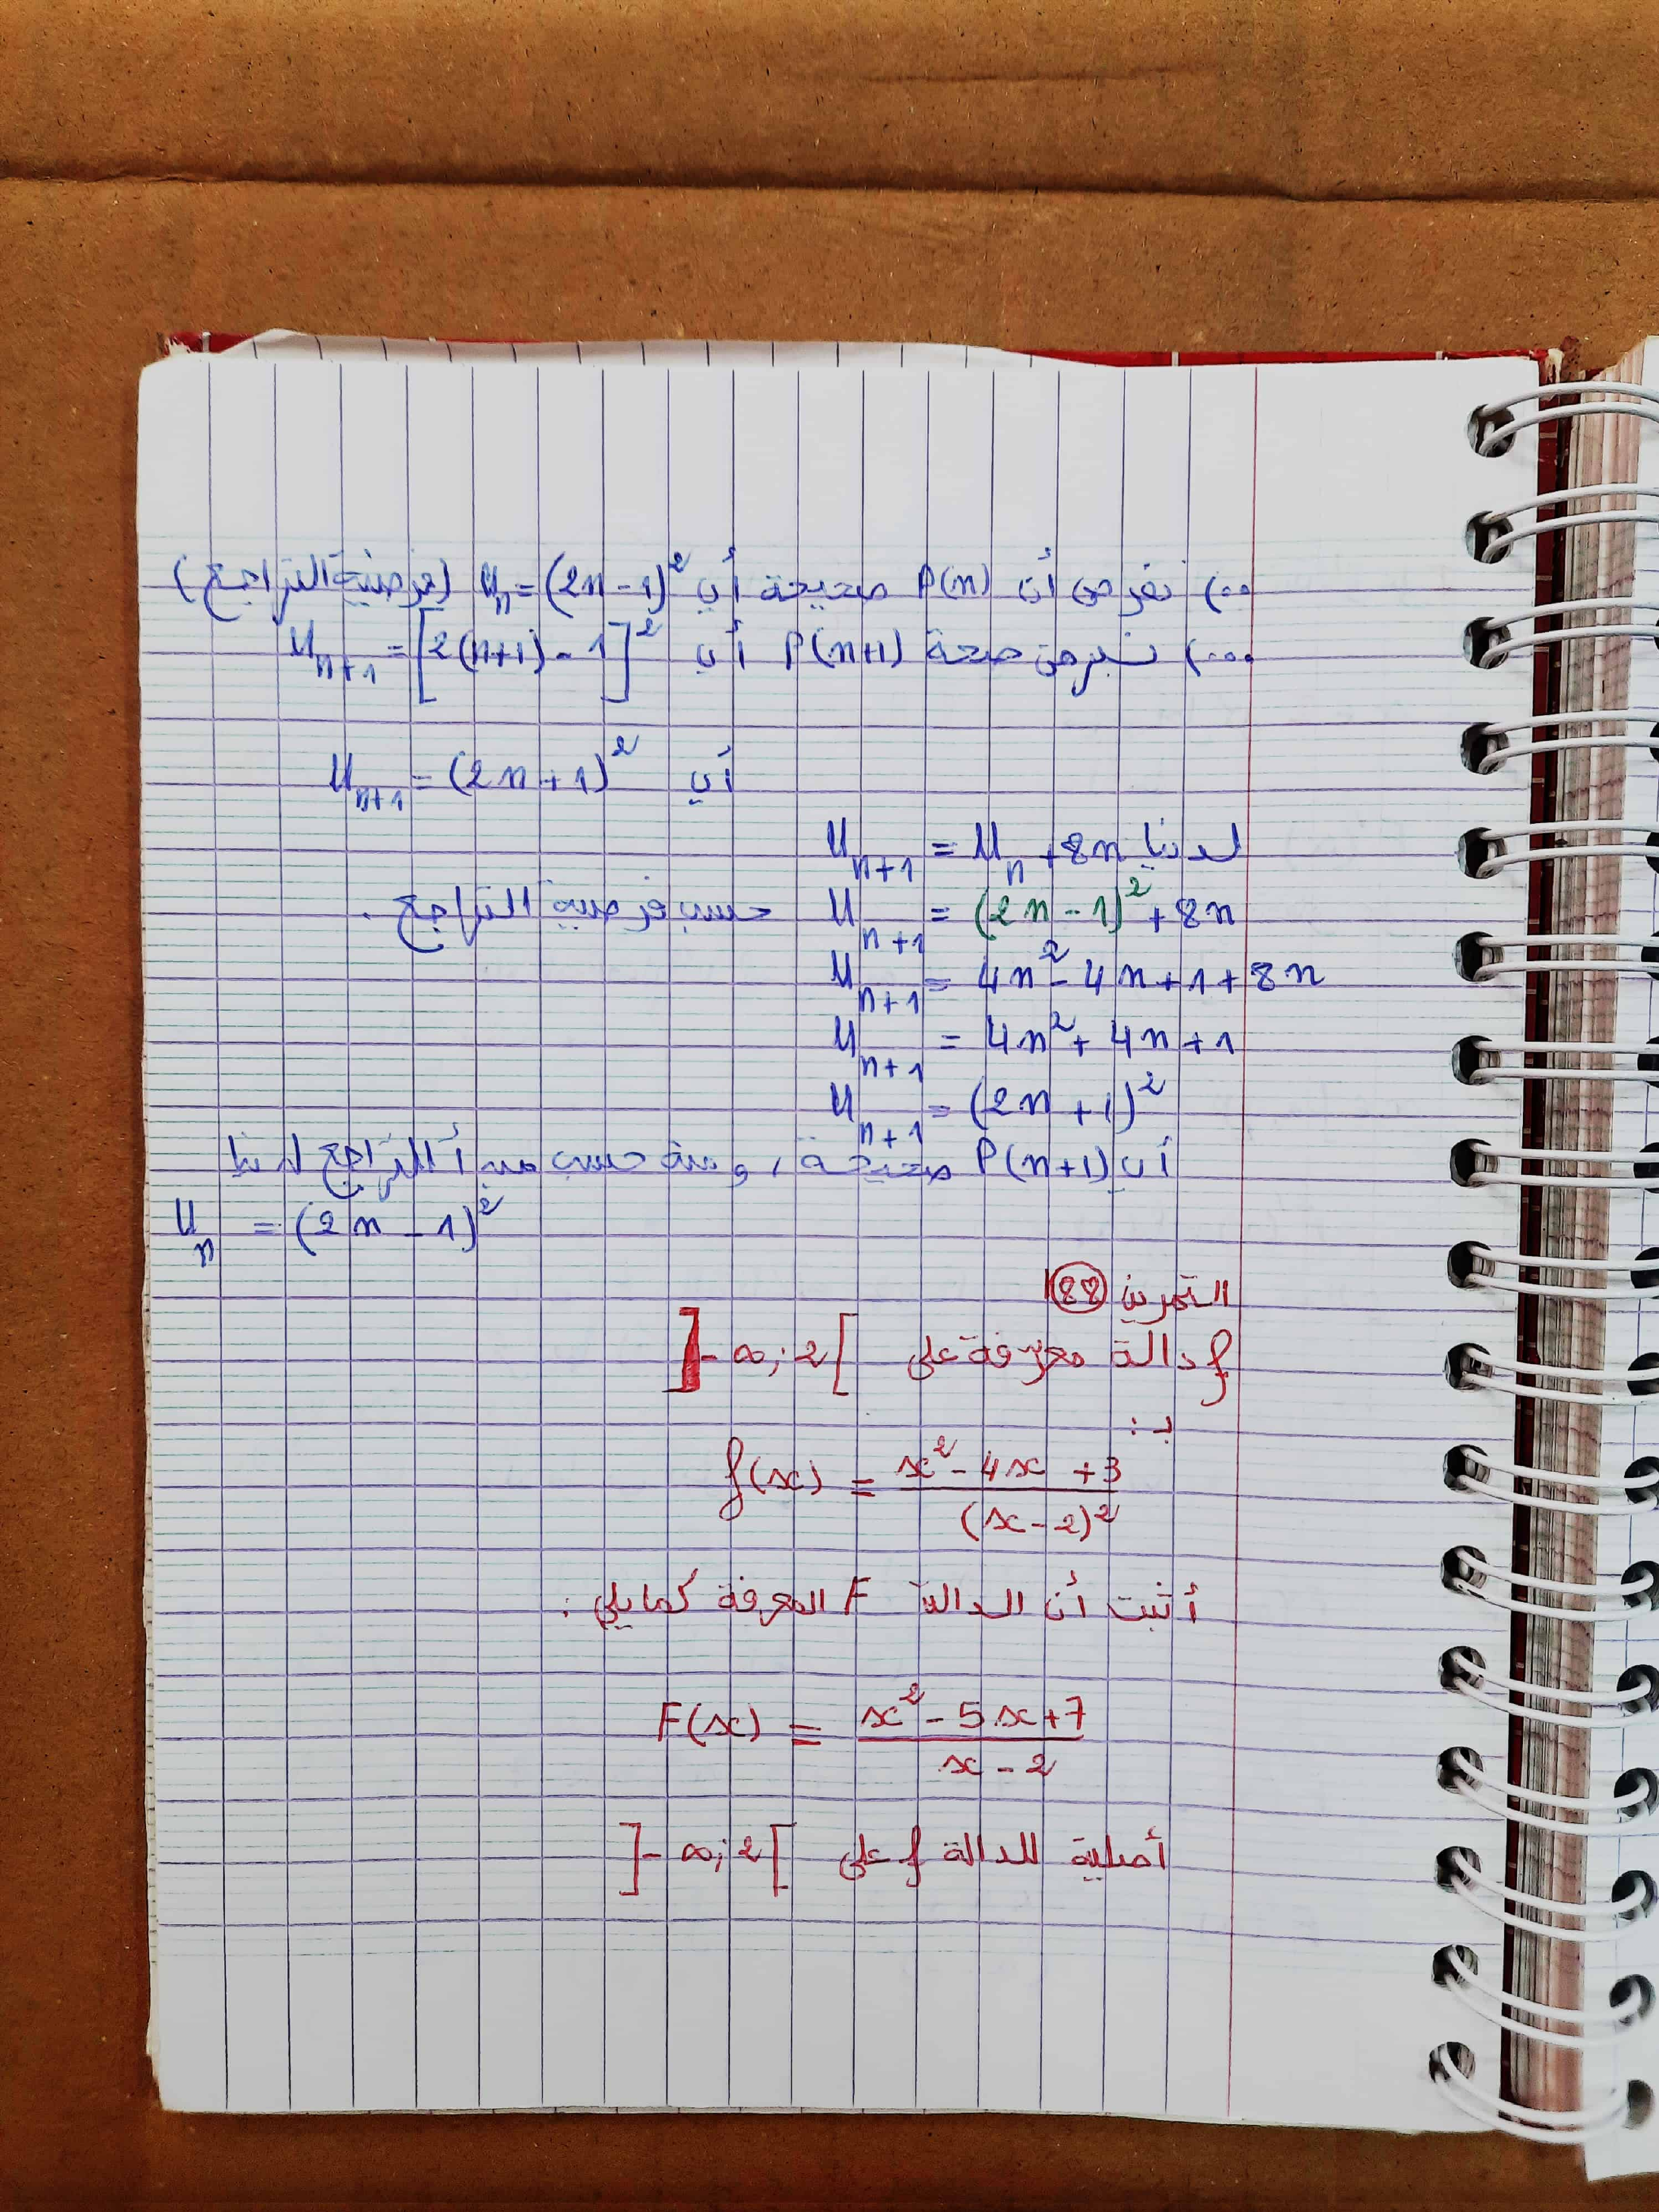 ••) نفرض أن P(n) صحيحة أي Uₙ = (2n - 1)² (فرضية التراجع)
•••) نبرهن صحة P(n+1) أي Uₙ₊₁ = [2(n+1) - 1]²
أي Uₙ₊₁ = (2n + 1)²
لدينا Uₙ₊₁ = Uₙ + 8n
Uₙ₊₁ = (2n - 1)² + 8n حسب فرضية التراجع .
Uₙ₊₁ = 4n² - 4n + 1 + 8n
Uₙ₊₁ = 4n² + 4n + 1
Uₙ₊₁ = (2n + 1)²
أي P(n+1) صحيحة ، ومنه حسب مبدأ التراجع لدينا
Uₙ = (2n - 1)²
التمرين 88
f دالة معرفة على ]-∞; 2[
بـ :
f(x) = (x² - 4x + 3)/(x - 2)²
أثبت أن الدالة F المعرفة كما يلي :
F(x) = (x² - 5x + 7)/(x - 2)
أصلية للدالة f على ]-∞; 2[